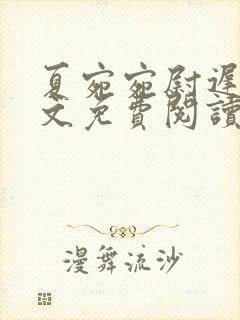 夏宛宛尉遲
文免費閱讀
漫舞流沙